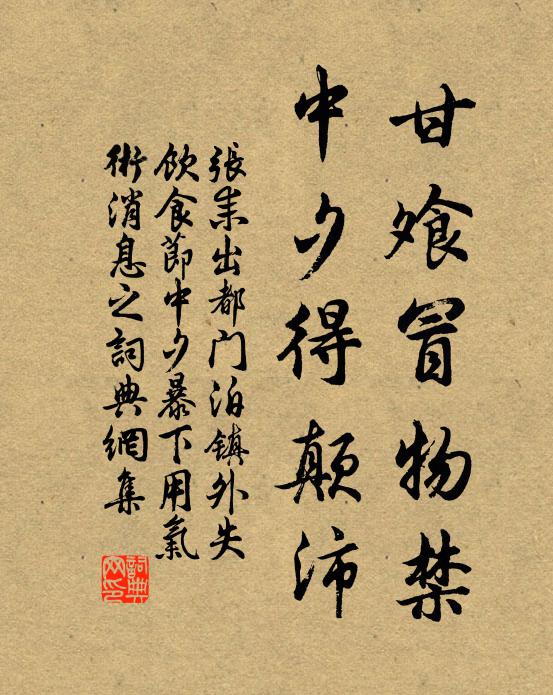 甘飧冒物禁
中夕得顛沛
張耒出都門泊鎮外失
飲食節中夕暴下用氣
術消息之詞典網集
詞典網印